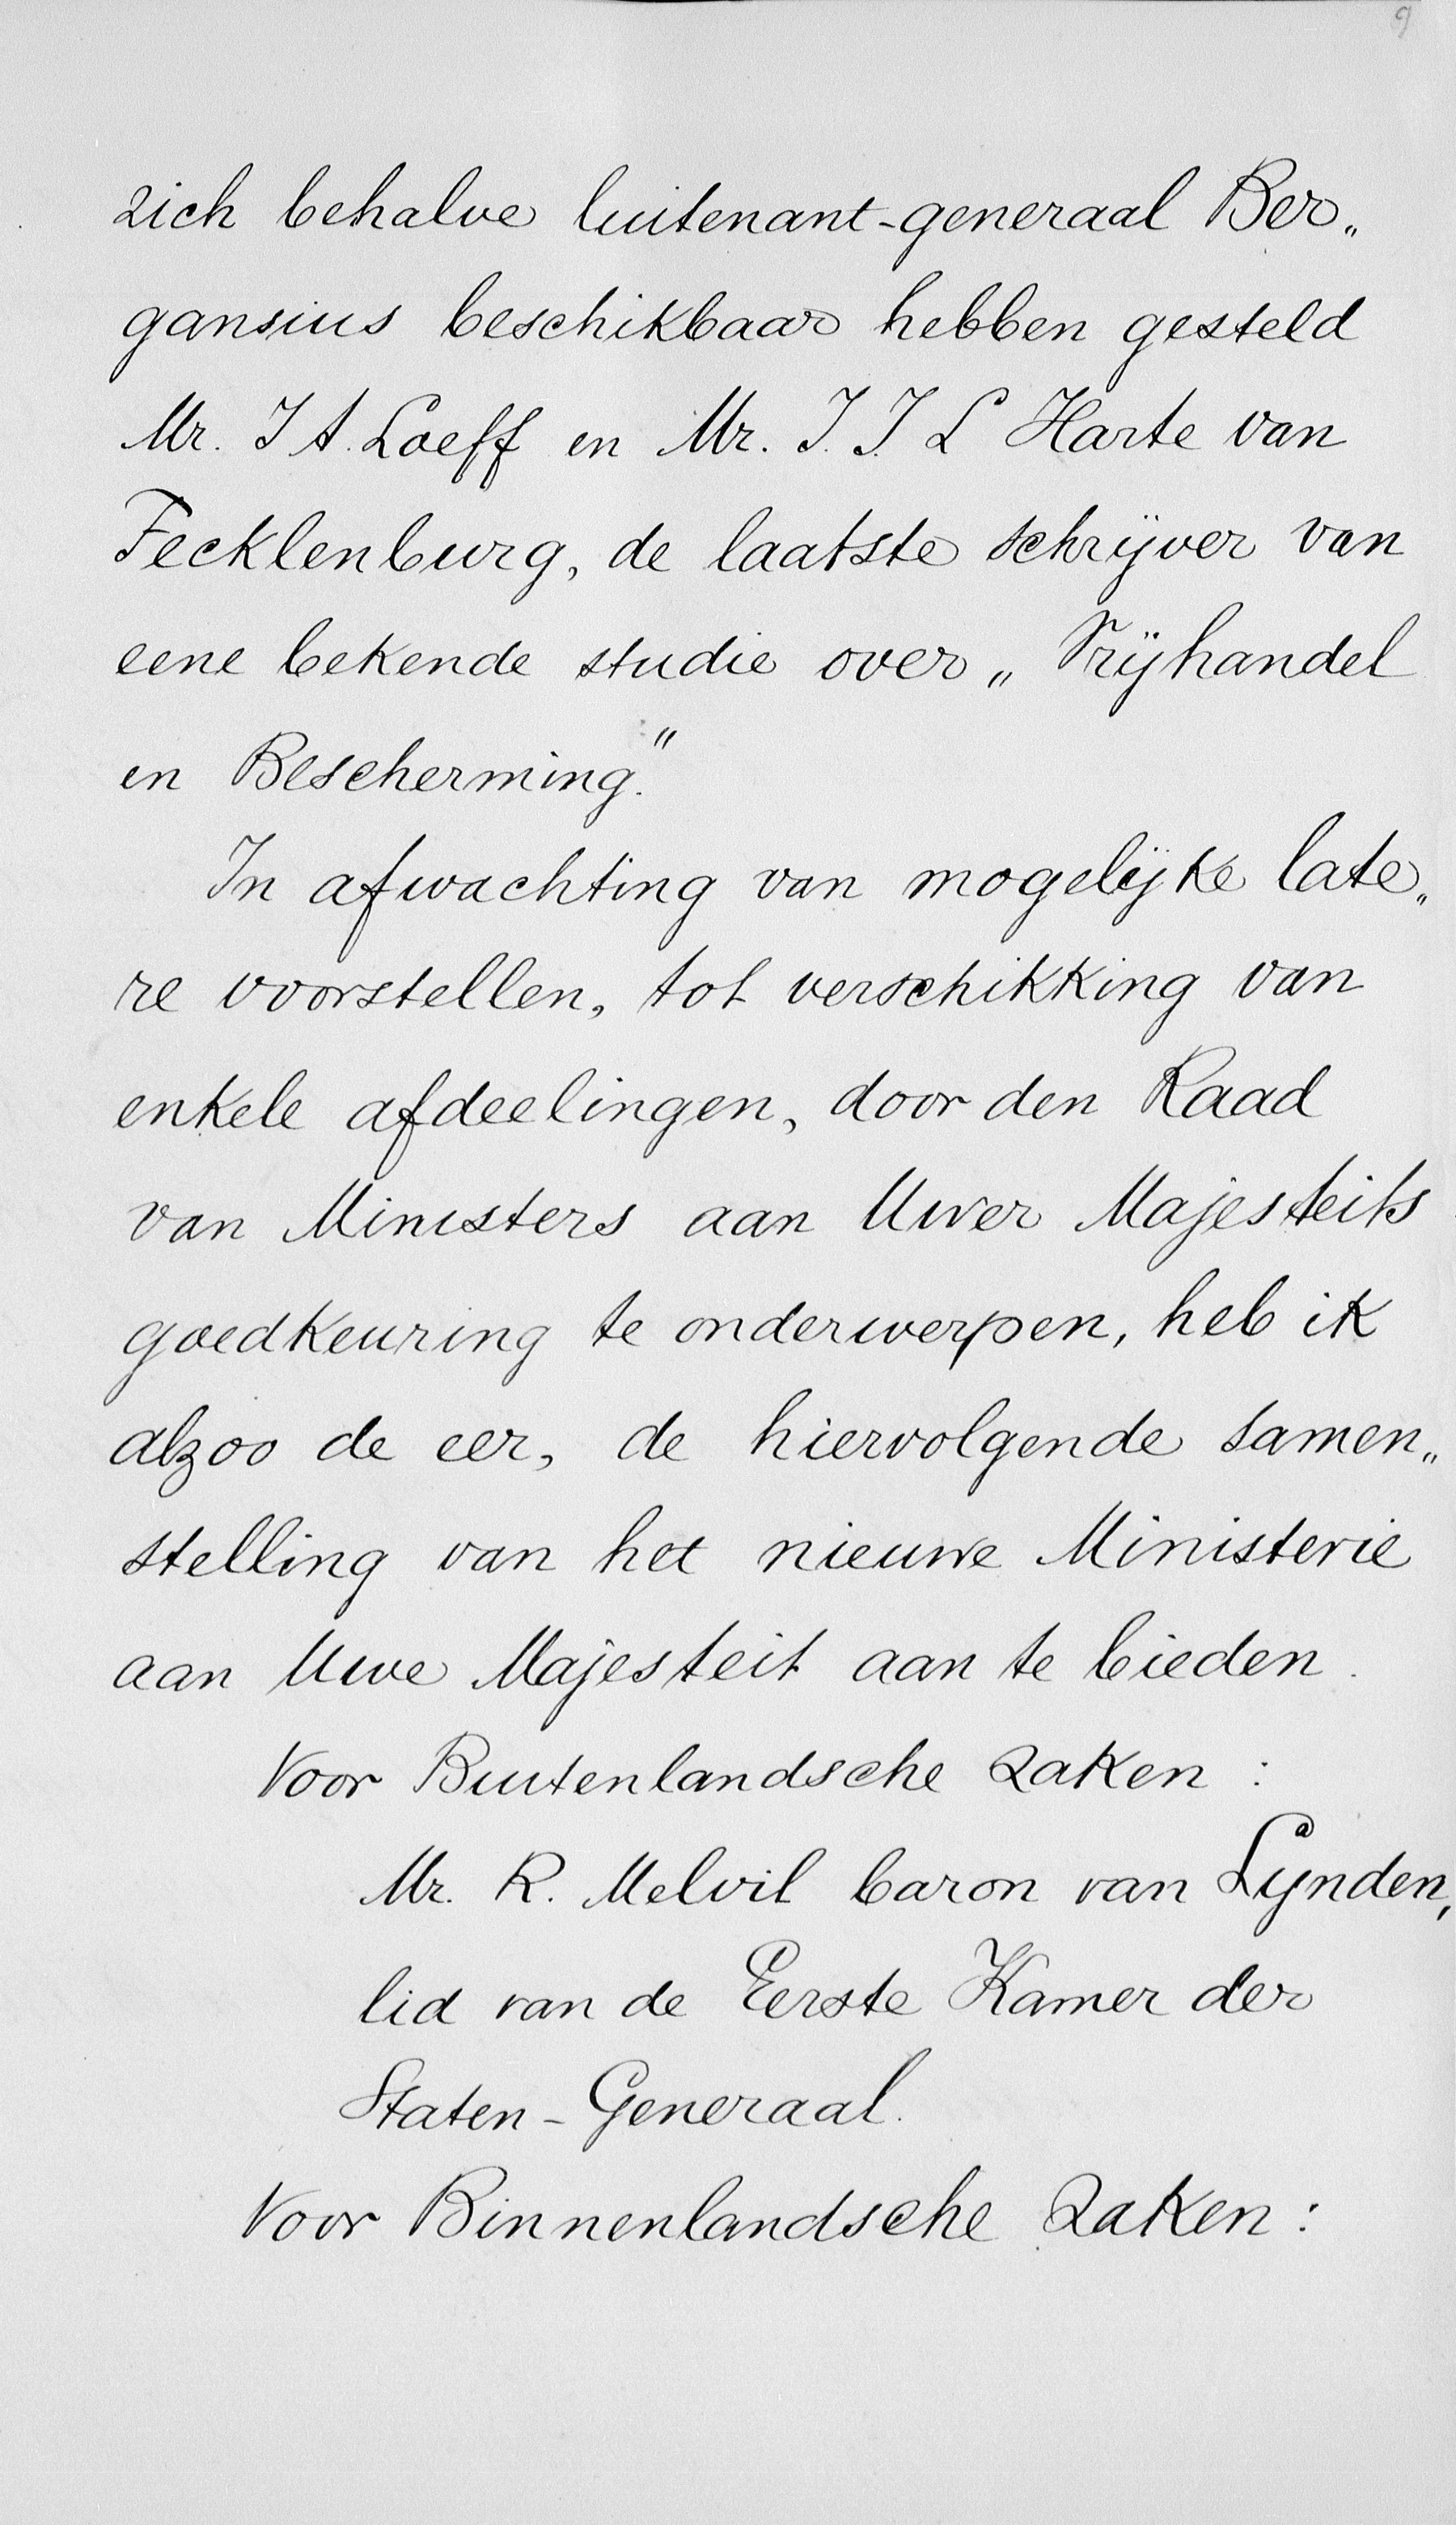 9
zich behalve luitenant-generaal Ber„
gansius beschikbaar hebben gesteld
Mr. J A. Loeff en Mr. J. J. L Harte van
Tecklenburg, de laatste schrijver van
eene bekende studie over „Vrijhandel
en Bescherming."
In afwachting van mogelijke late„
re voorstellen, tot verschikking van
enkele afdeelingen, door den Raad
van Ministers aan Uwer Majesteits
goedkeuring te onderwerpen, heb ik
alzoo de eer, de hiervolgende samen„
stelling van het nieuwe Ministerie
aan Uwe Majesteit aan te bieden.
Voor Buitenlandsche Zaken:
Mr. R. Melvil baron van Lynden,
lid van de Eerste Kamer der
Staten-Generaal.
Voor Binnenlandsche Zaken: